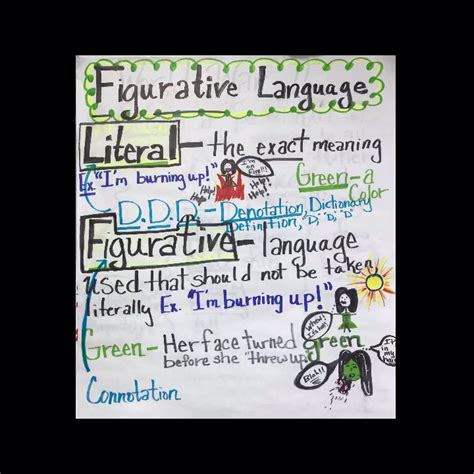 Figurative Language
Literal - the exact meaning
Ex. "I'm burning up!"
I'm on fire!!!
Help! Help!
Help! Help!
Green - a
Color
D.D.D. - Denotation, Dictionary
Definition, "D, "D, "D
Figurative - language
used that should not be taken
literally Ex. "I'm burning up!"
Whew! It's hot!
Green - Her face turned green
before she "threw up"
Blah!!
It's in my hair!
Connotation